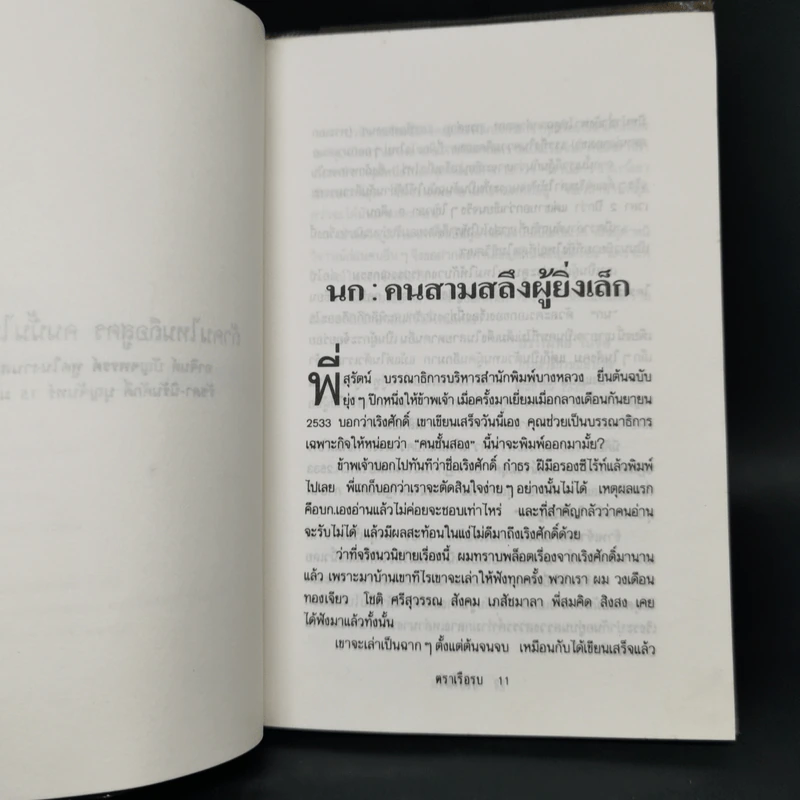 นก : คนสามสลึงผู้ยิ่งเล็ก
พี่สุรัตน์ บรรณาธิการบริหารสำนักพิมพ์บางหลวง ยื่นต้นฉบับ
ยุ่งๆ ปึกหนึ่งให้ข้าพเจ้า เมื่อครั้งมาเยี่ยมเมื่อกลางเดือนกันยายน
2533 บอกว่าเริงศักดิ์ เขาเขียนเสร็จวันนี้เอง คุณช่วยเป็นบรรณาธิการ
เฉพาะกิจให้หน่อยว่า "คนชั้นสอง" นี้น่าจะพิมพ์ออกมามั้ย?
ข้าพเจ้าบอกไปทันทีว่าชื่อเริงศักดิ์ กำธร ฝีมือรองซีไร้ท์แล้วพิมพ์
ไปเลย พี่แกก็บอกว่าเราจะตัดสินใจง่ายๆ อย่างนั้นไม่ได้ เหตุผลแรก
คือบก.เองอ่านแล้วไม่ค่อยจะชอบเท่าไหร่ และที่สำคัญกลัวว่าคนอ่าน
จะรับไม่ได้ แล้วมีผลสะท้อนในแง่ไม่ดีมาถึงเริงศักดิ์ด้วย
ว่าที่จริงนวนิยายเรื่องนี้ ผมทราบพล็อตเรื่องจากเริงศักดิ์มานาน
แล้ว เพราะมาบ้านเขาทีไรเขาจะเล่าให้ฟังทุกครั้ง พวกเรา ผม วงเดือน
ทองเจียว โชติ ศรีสุวรรณ สังคม เภสัชมาลา พี่สมคิด สิงสง เคย
ได้ฟังมาแล้วทั้งนั้น
เขาจะเล่าเป็นฉากๆ ตั้งแต่ต้นจนจบ เหมือนกับได้เขียนเสร็จแล้ว
ตราเรือรบ 11